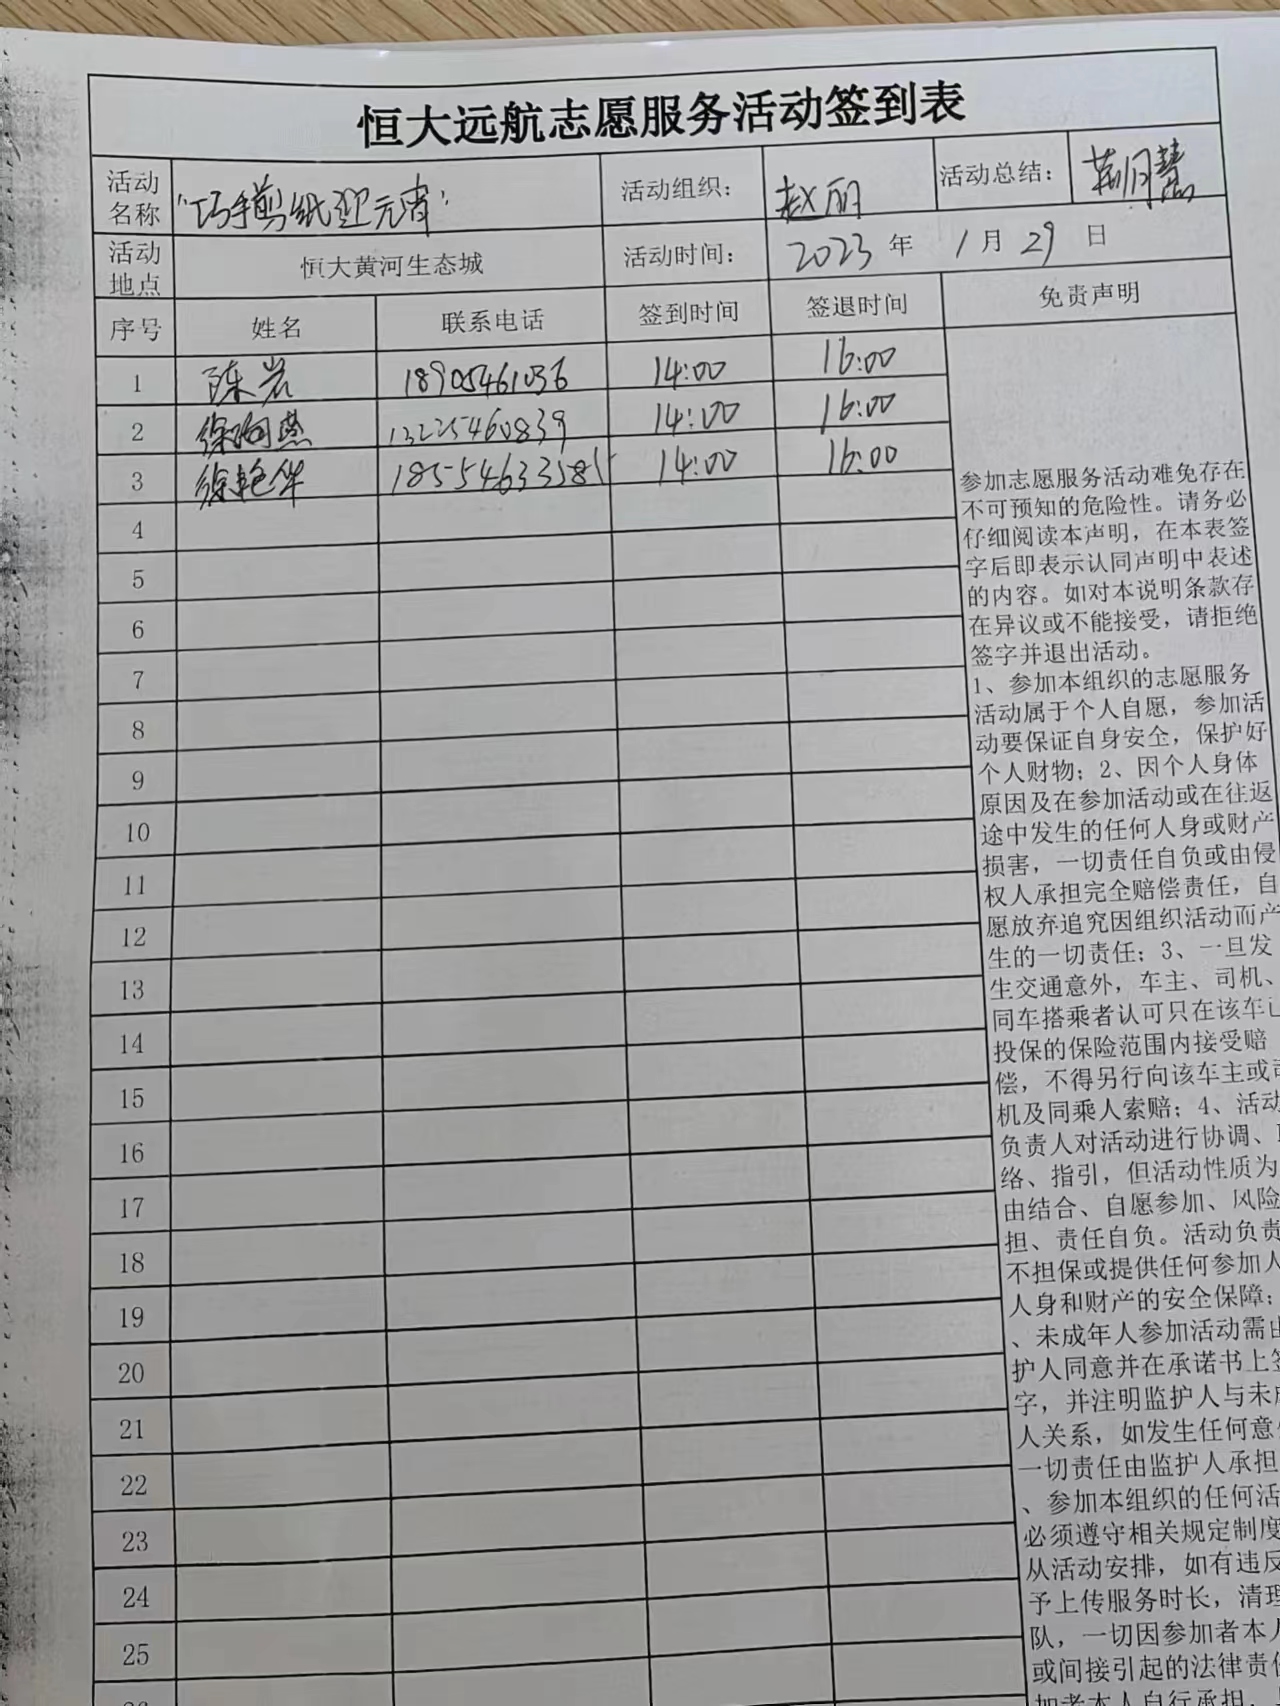 恒大远航志愿服务活动签到表
活动名称 "巧手剪纸迎元宵" 活动组织： 赵丽 活动总结： 荆月慧
活动地点 恒大黄河生态城 活动时间： 2023 年 1 月 29 日
序号 姓名 联系电话 签到时间 签退时间 免责声明
1 陈岩 18905461036 14:00 16:00
2 13225460839 14:00 16:00
3 徐艳华 14:00 16:00
4
5
6
7
8
9
10
11
12
13
14
15
16
17
18
19
20
21
22
23
24
25
参加志愿服务活动难免存在
不可预知的危险性。请务必
仔细阅读本声明，在本表签
字后即表示认同声明中表述
的内容。如对本说明条款存
在异议或不能接受，请拒绝
签字并退出活动。
1、参加本组织的志愿服务
活动属于个人自愿，参加活
动要保证自身安全，保护好
个人财物；2、因个人身体
原因及在参加活动或在往返
途中发生的任何人身或财产
损害，一切责任自负或由侵
权人承担完全赔偿责任，自
愿放弃追究因组织活动而产
生的一切责任；3、一旦发
生交通意外，车主、司机、
同车搭乘者认可只在该车已
投保的保险范围内接受赔
偿，不得另行向该车主或司
机及同乘人索赔；4、活动
负责人对活动进行协调、
络、指引，但活动性质为
由结合、自愿参加、风险
担、责任自负。活动负责
不担保或提供任何参加人
人身和财产的安全保障；
、未成年人参加活动需由
护人同意并在承诺书上签
字，并注明监护人与未成
人关系，如发生任何意外
一切责任由监护人承担
、参加本组织的任何活
必须遵守相关规定制度
从活动安排，如有违反
予上传服务时长，清理
队，一切因参加者本人
或间接引起的法律责任
加者本人自行承担，